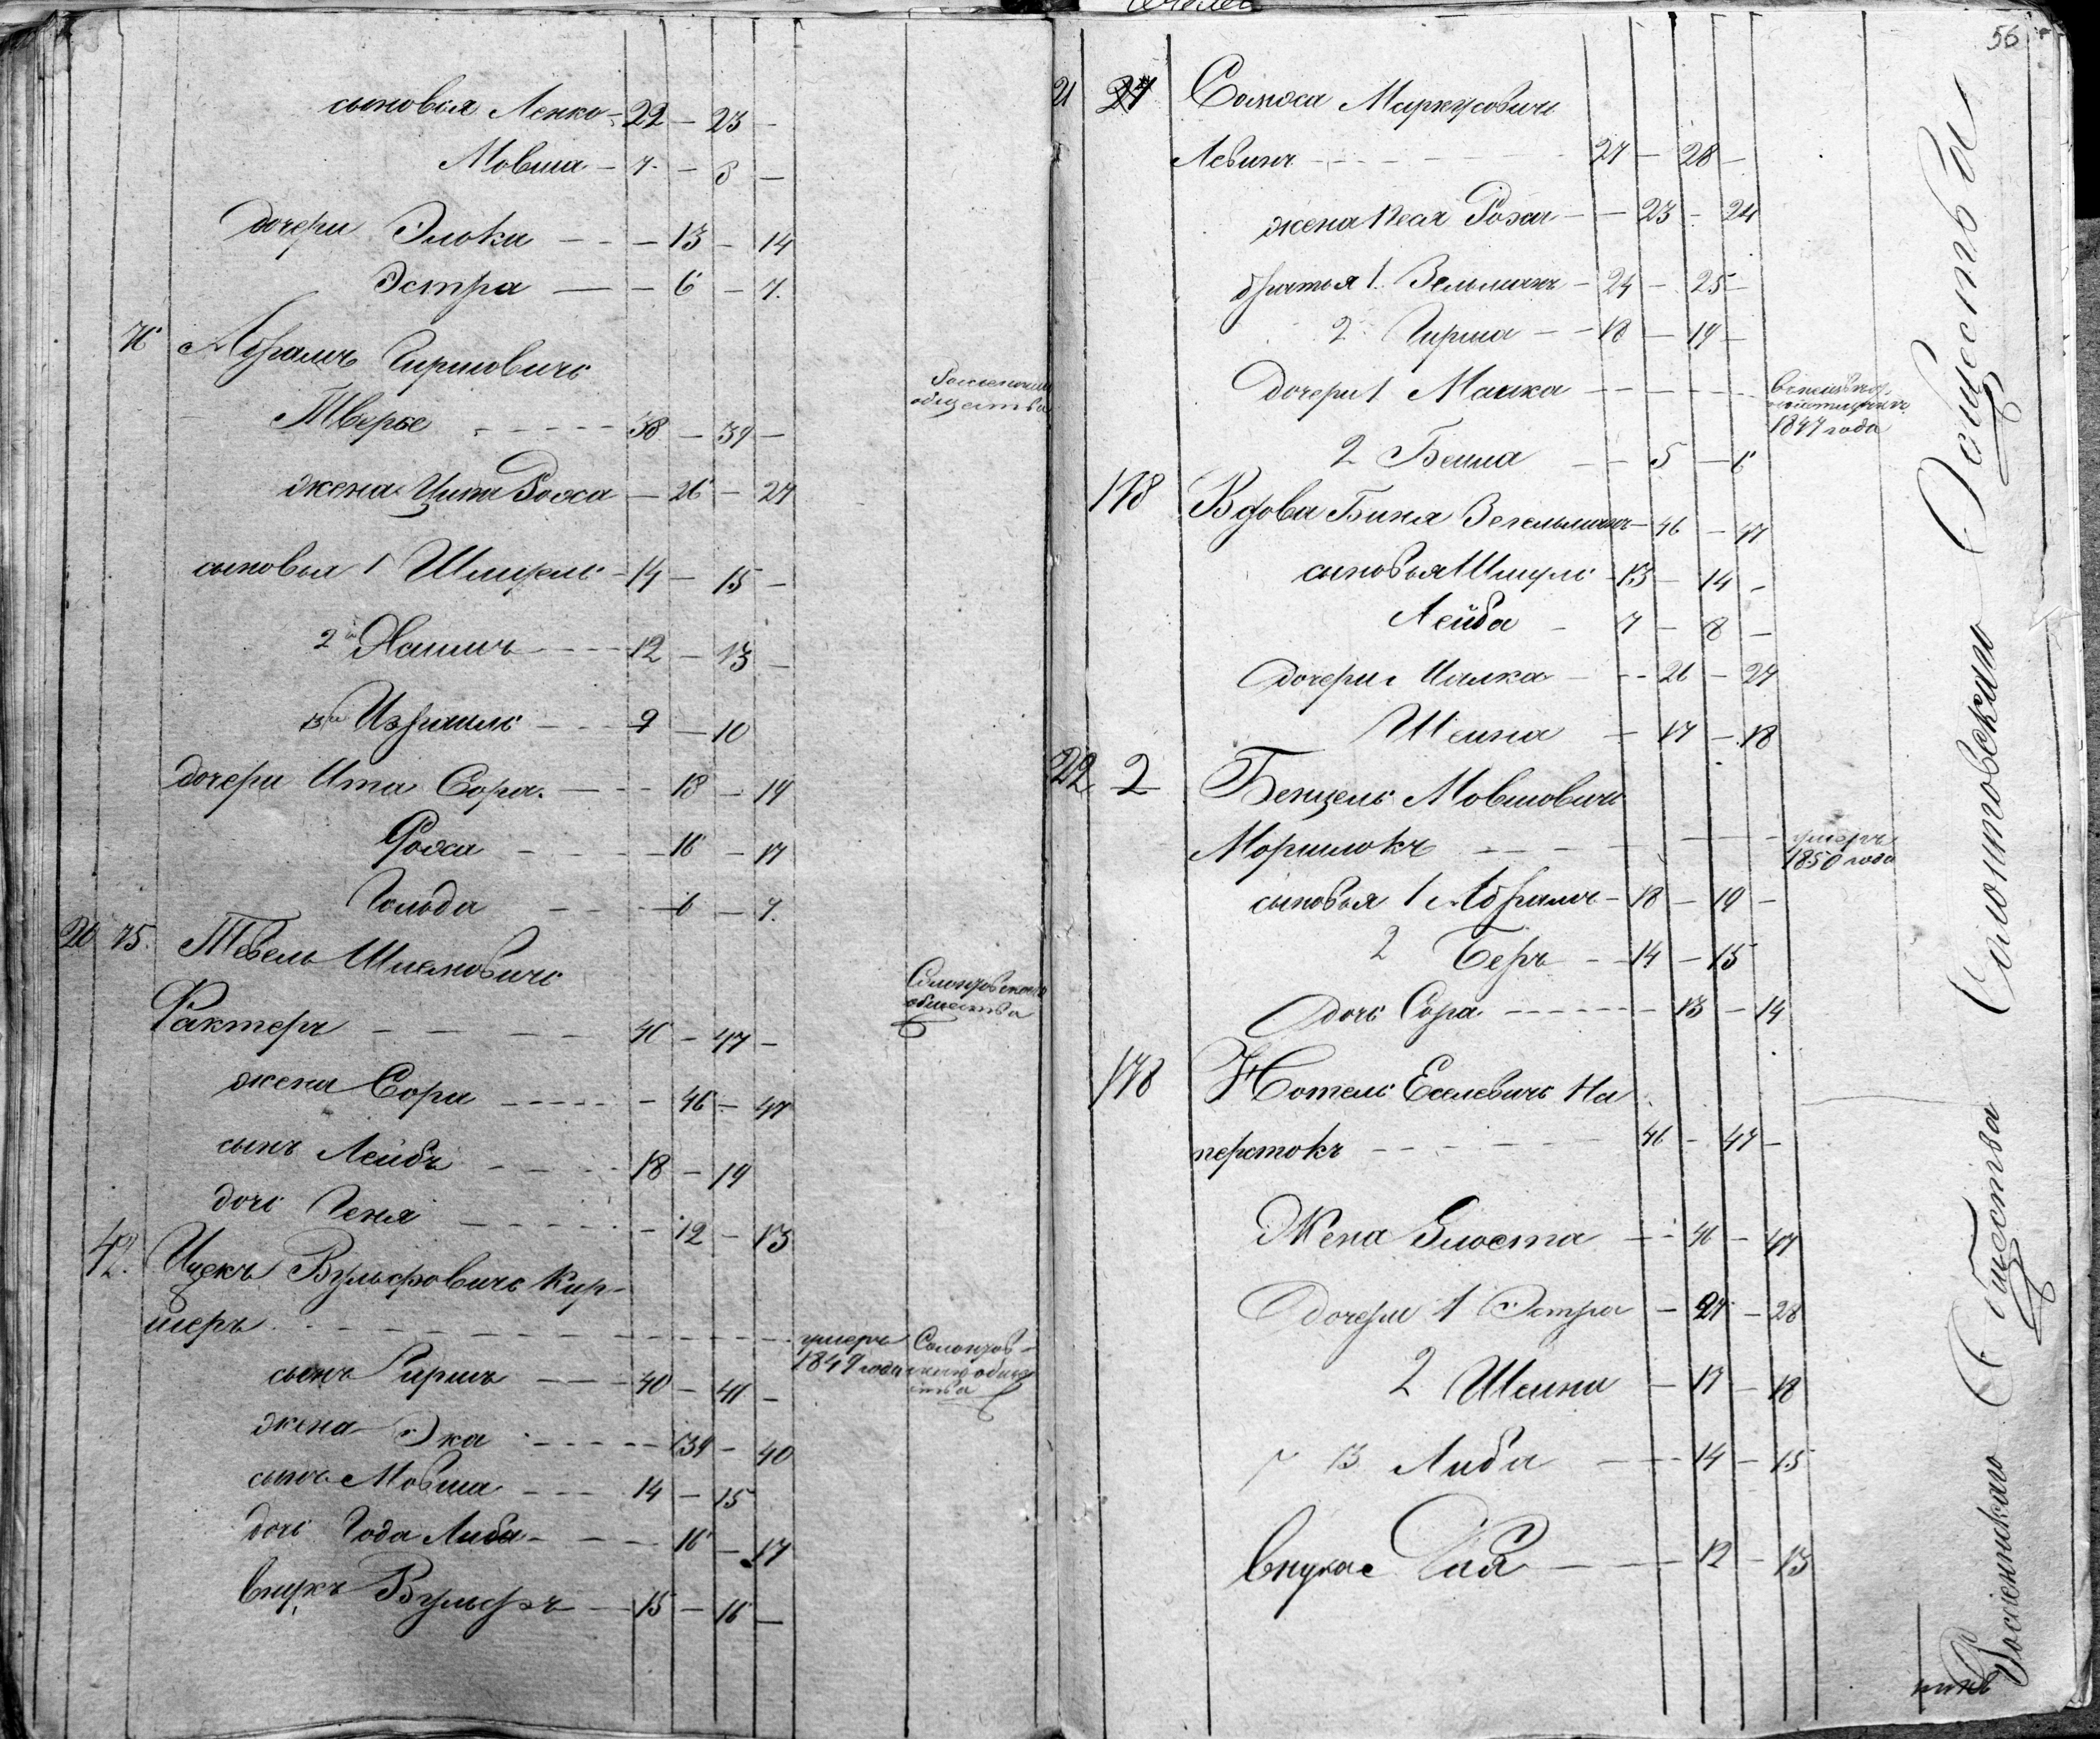 сыновья Ленко - 22 - 23 -
Мовша - 7 - 8 -
дочери Элька - - 13 - 14
Эстра - - 6 - 7.
76 Абрамъ Гиршовичъ
Тверье - - - - 38 - 39 -
общества
жена Ципа Рохса - 26 - 27
сыновья 1 Шмерель - 14 - 15 -
2й Хаимъ - - 12 - 13 -
3й Израиль - - 9 - 10
дочери Ита Сора - - 18 - 19
Рохса - - - 16 - 17
Гольда - - - 6 - 7.
20 75. Тевель Шлемовичъ
Фактеръ - - - - 46 - 47 -
общества
жена Сора - - - - 46 - 47
сынъ Лейбъ - - - 18 - 19
дочь Геня - - - - 12 - 13
42. Ицекъ Вульфовичъ Кир-
шеръ - - - - - - - - умеръ 1849 года
сынъ Гиршъ - - - 40 - 41 -
жена Эка - - - - 39 - 40
сынъ Мовша - - - 14 - 15
дочь Года Либа - - - 16 - 17
внукъ Вульфъ - 15 - 16 -
56
21 27 Маркусовичъ
Левинъ - - - - - 27 - 28 -
жена Песя Рохса - - 23 - 24
братья 1. Зельманъ - 24 - 25 -
2 Гирша - - 18 - 19 -
дочери 1 Малка - - - - -
1847 года
2 Бейла - - 5 - 6
178 Вдова Биня Зегельманъ - 46 - 47
сыновья Шмуль - 13 - 14 -
Лейба - 7 - 8 -
дочери - - 26 - 27
Шейна - 17 - 18
22 2 Бенцель Мовшовичъ
- - - - - - умеръ 1850 года
сыновья 1 Абрамъ - 18 - 19 -
2 Беръ - - 14 - 15
дочь Сора - - - - - - 13 - 14
178 Нотель Еселевичъ На
перстокъ - - - - - - 46 - 47 -
Жена - - 46 - 47
дочери 1 Эстра - 27 - 28
2 Шейна - 17 - 18
3 Либа - - - 14 - 15
внука - - - 12 - 13
Россіенскаго Общества
Общества